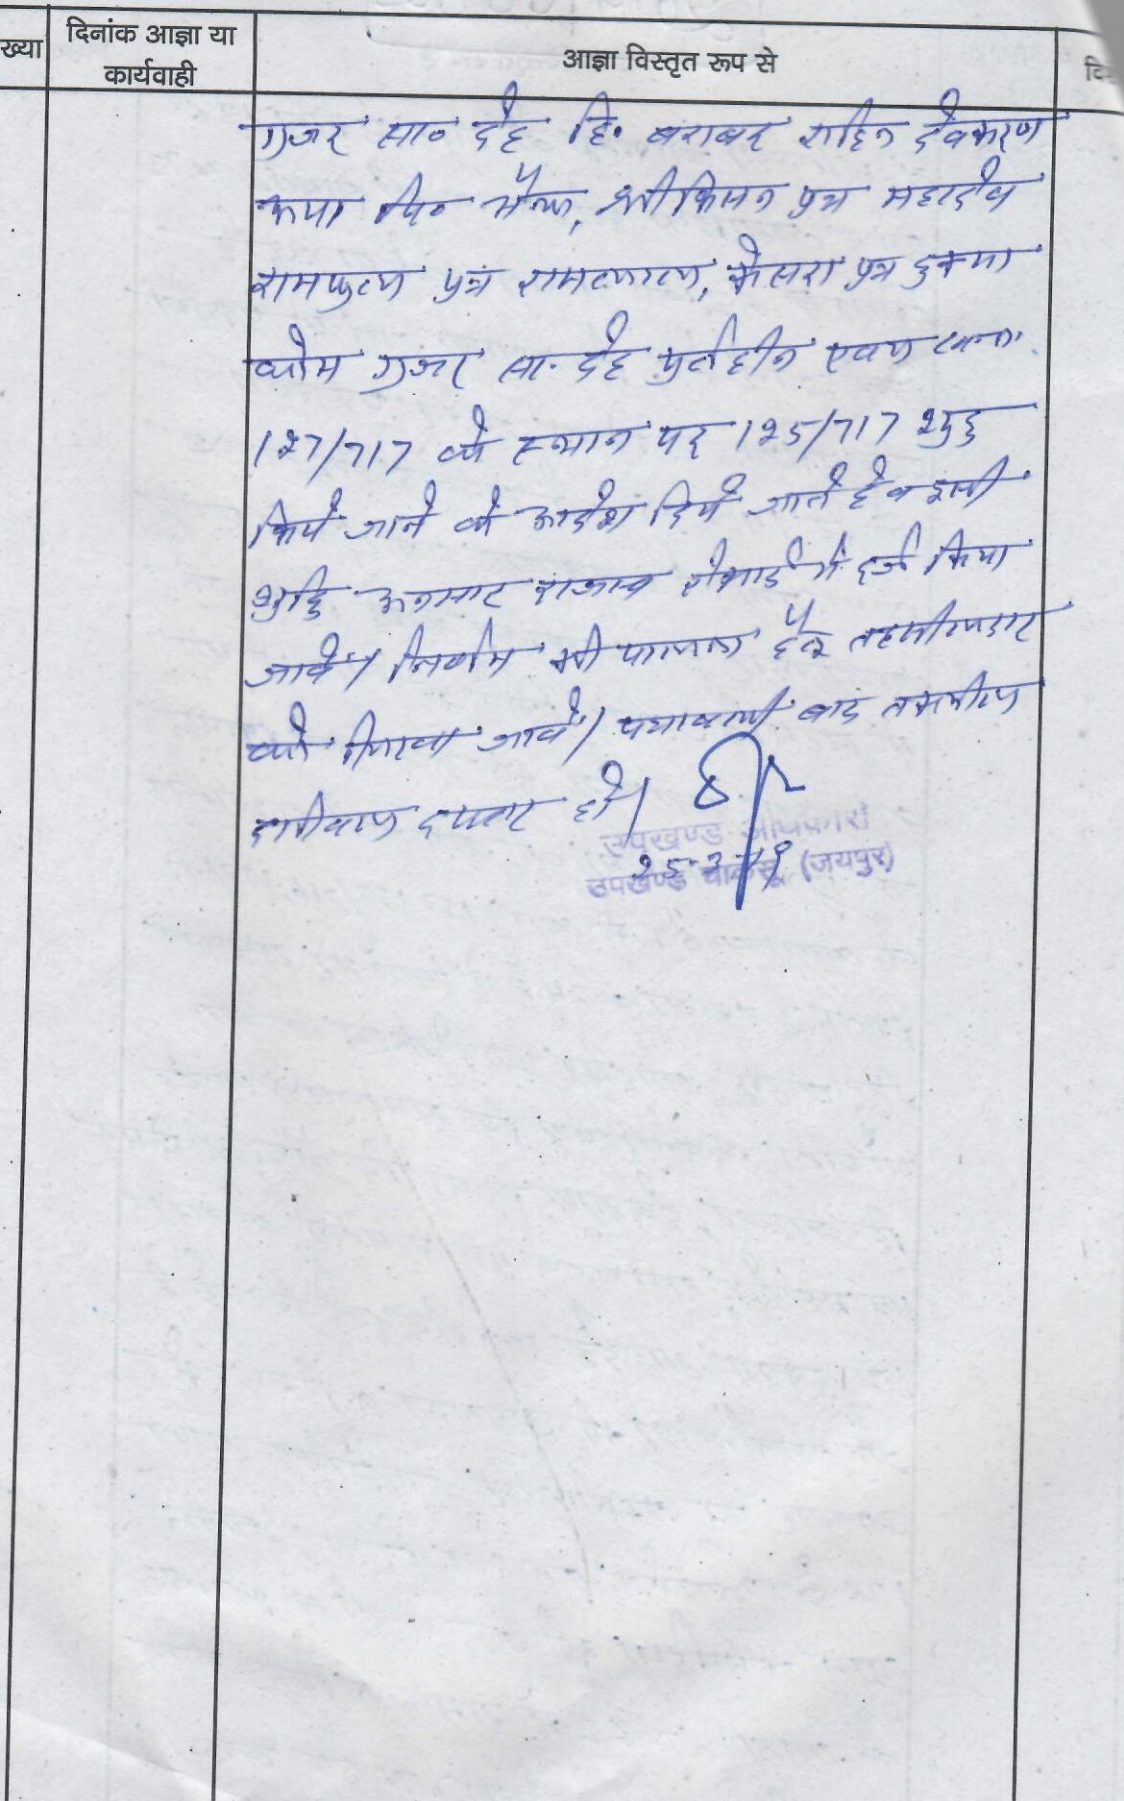 ख्या
दिनांक आज्ञा या
कार्यवाही
आज्ञा विस्तृत रूप से
गुजर सा० देह हि. बराबर राहिन देवकरण
पि० श्रीकिसन पुत्र महादेव
रामफुल पुत्र रामलाल, केसरा पुत्र
कौम गुजर सा. देह मुर्तहीन
127/717 के स्थान पर 125/717 शुद्ध
किये जाने के आदेश दिये जाते है व इसी
शुद्धि अनुसार राजस्व रेकार्ड में दर्ज किया
जावे। निर्णय की पालना हेतु तहसीलदार
को लिखा जावे। पत्रावली बाद तकमील
दाखील दफ्तर हो।
उपखण्ड अधिकारी
उपखण्ड चाकसू (जयपुर)